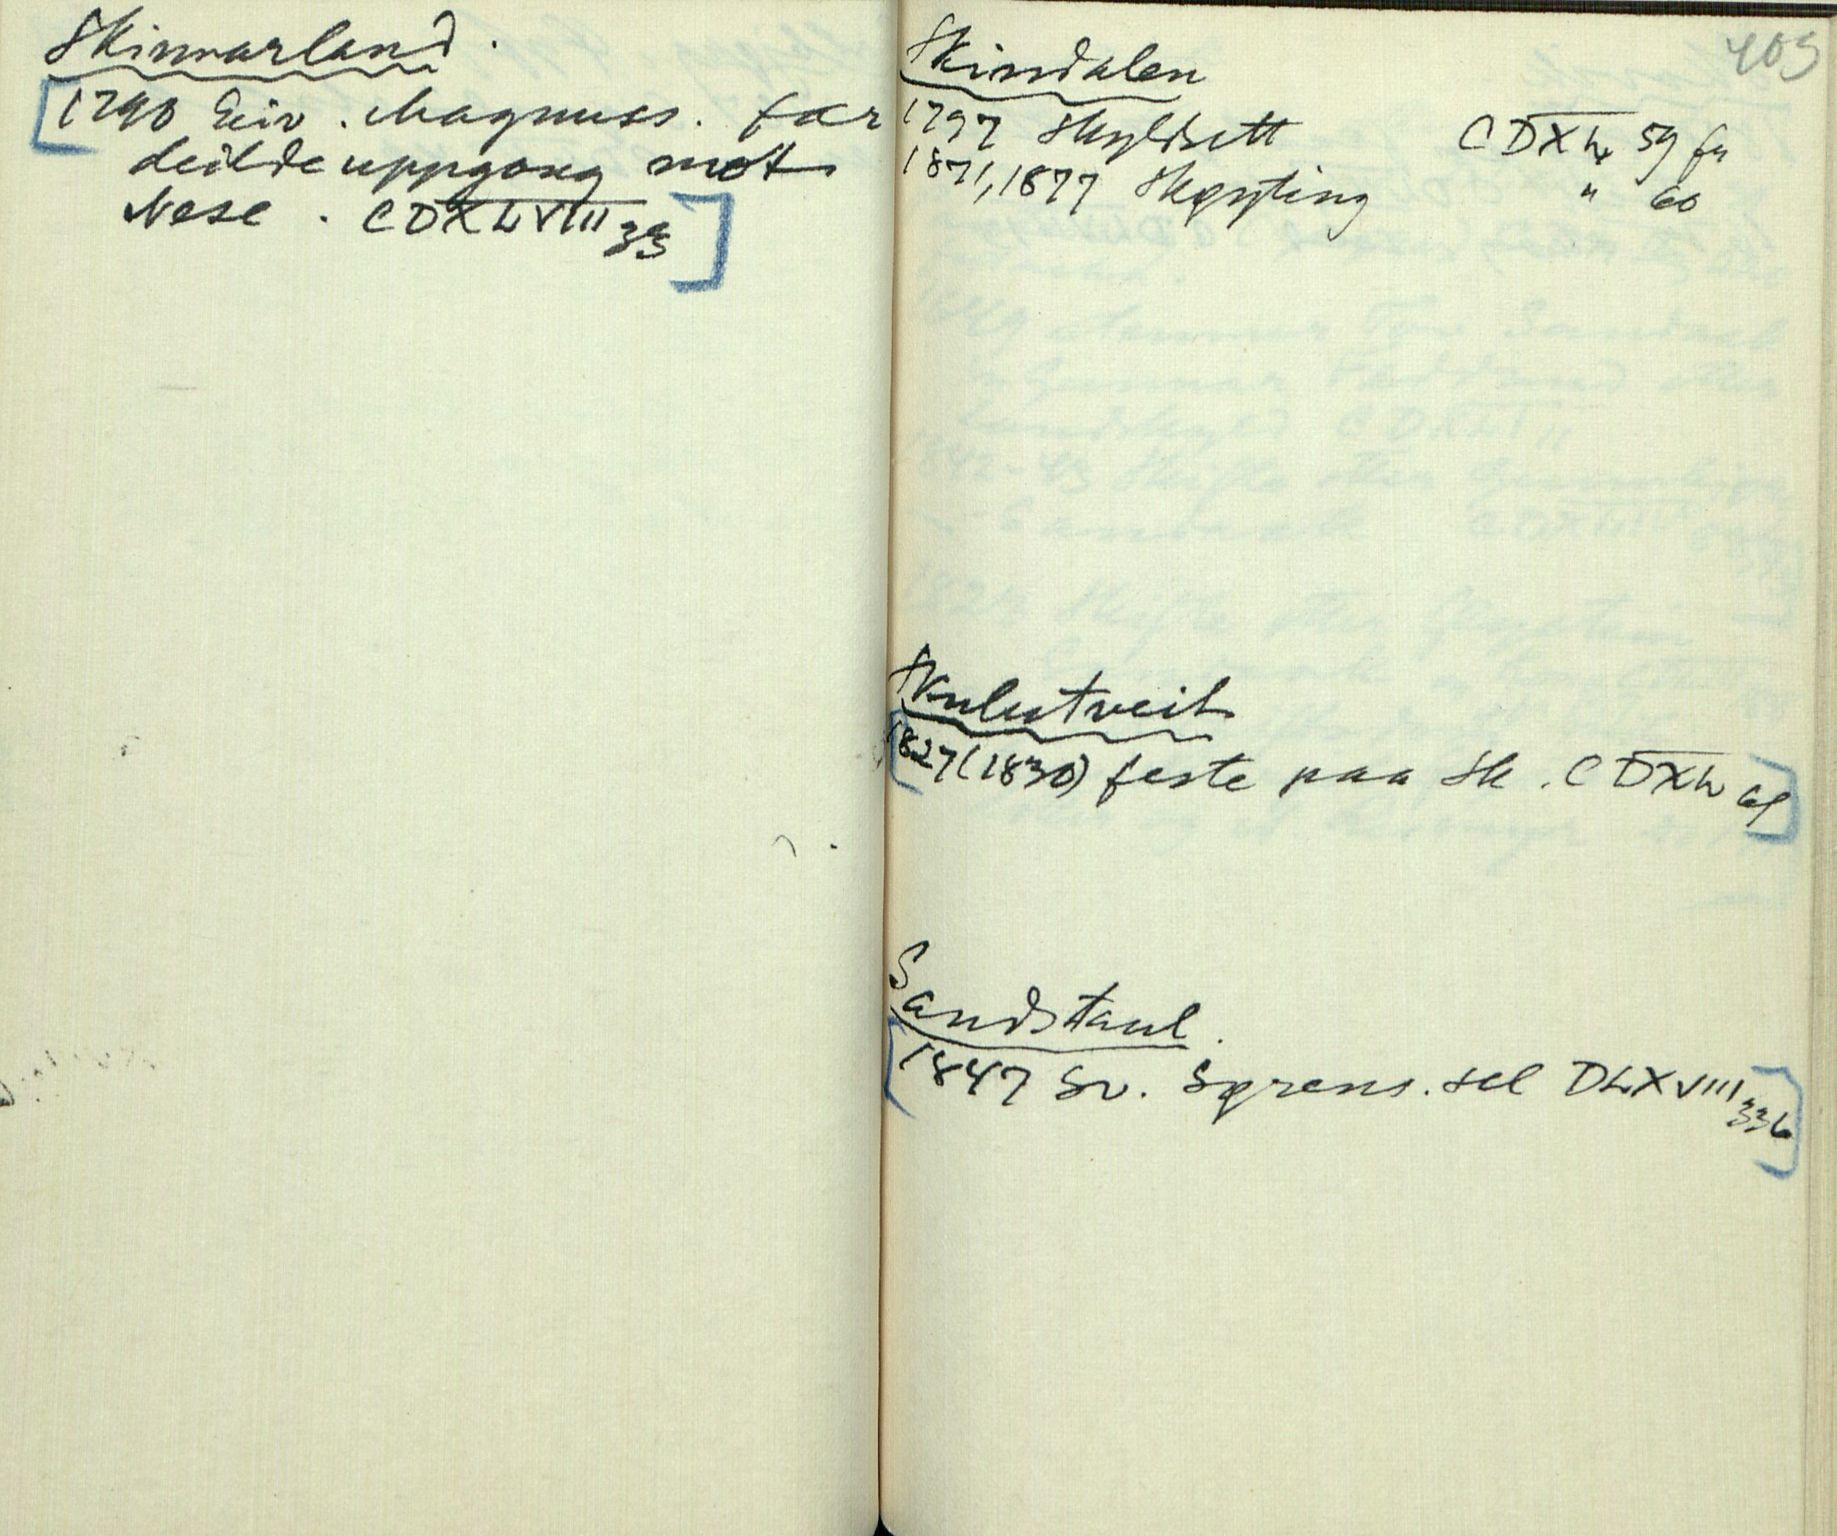 Skinnarland.
1790 Eiv. Magnuss. fær
deildeuppgong mot
Nese. CDXLVIII 33
405
Skindalen
1797 Skyldsett CDXL 59 fu
1871, 1877 Skøyting " 60
Skulestveit
1827 (1830) feste paa Sk. CDXL 61
Sandstaul.
1847 Sv. Sørens. sel DLXVIII 336